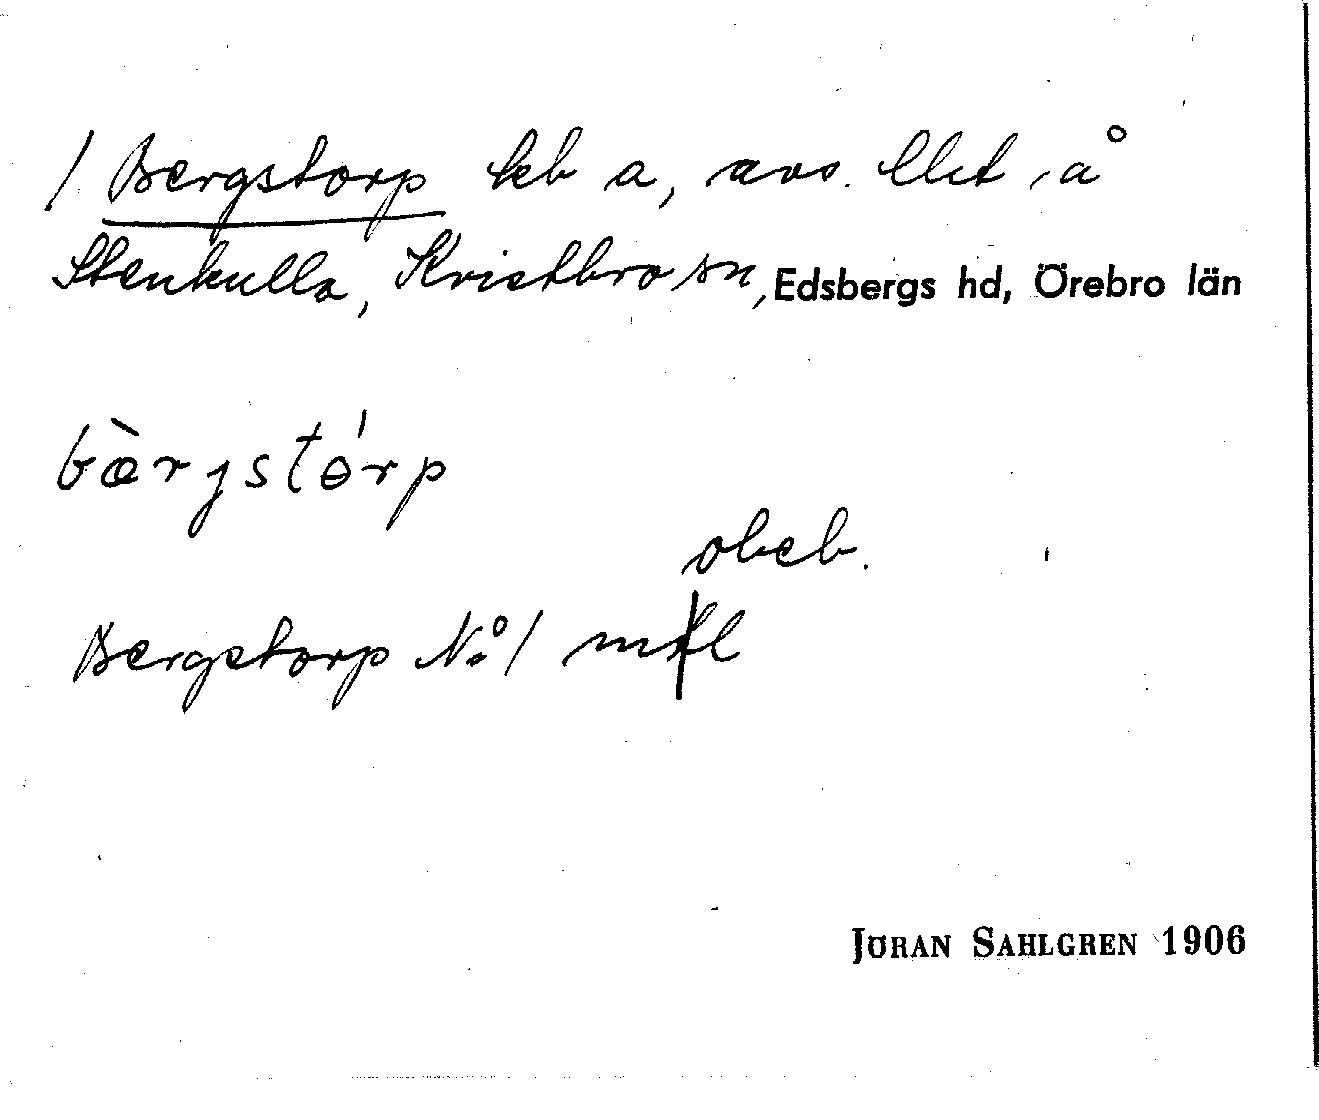 / Bergstorp a, avs. å
Stenkulla, Kvistbro sn, Edsbergs hd, Örebro län
bæ̀rgstɵ́rp
obeb.
Bergstorp No 1 mtl
JÖRAN SAHLGREN 1906